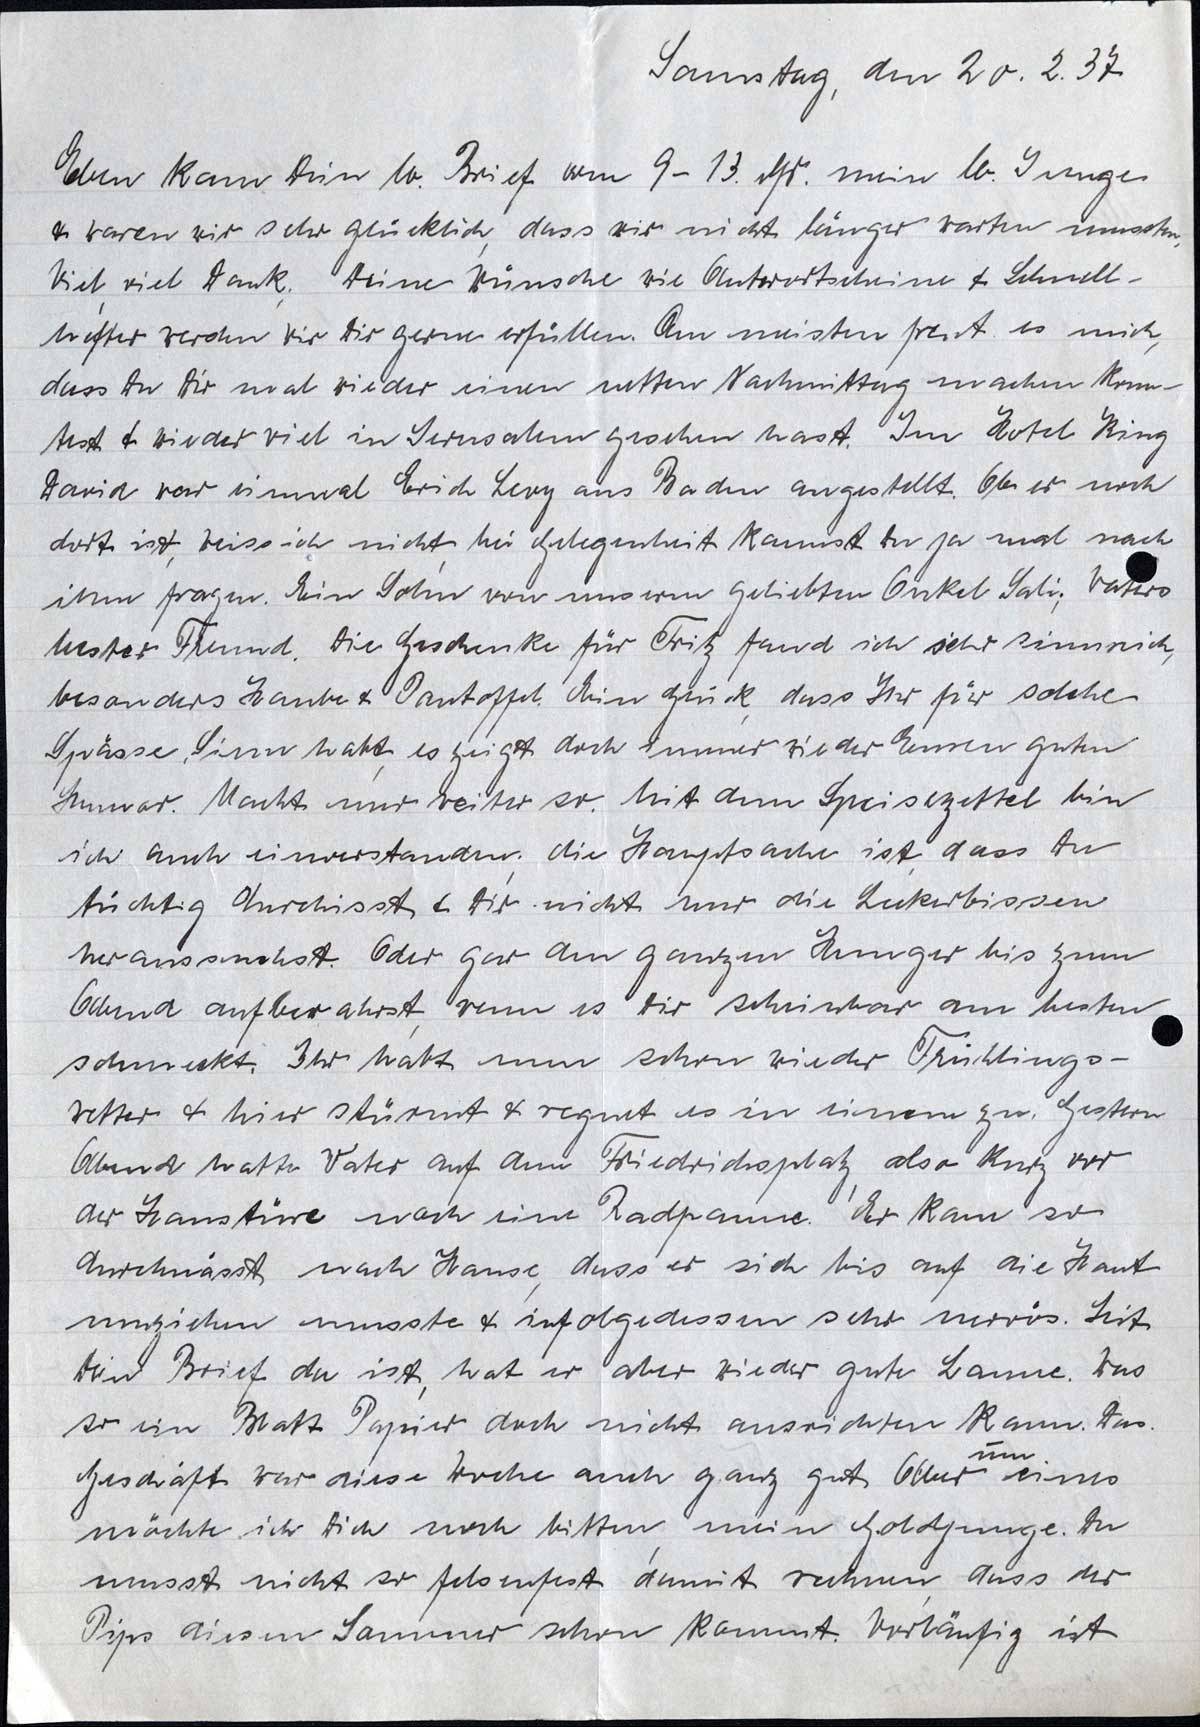 Samstag, den 20. 2. 37
Eben kam Dein lb. Brief vom 9–13. ds. mein lb. Junge
& waren wir sehr glücklich, dass wir nicht länger warten mussten,
Viel, viel Dank. Deine Wünsche wie Antwortscheine & Schnell-
hefter werden wir Dir gerne erfüllen. Am meisten freut es mich,
dass Du Dir mal wieder einen netten Nachmittag machen konn-
test & wieder viel in Jerusalem gesehen hast. Im Hotel King
David war einmal Erich Levy aus Baden angestellt. Ob er noch
dort ist, weiss ich nicht, bei Gelegenheit kannst Du ja mal nach
ihm fragen. Ein Sohn von unserm geliebten Onkel Sali, Vaters
bester Freund. Die Geschenke für Fritz fand ich sehr sinnreich,
besonders Haube & Pantoffel. Ein Glück, dass Ihr für solche
Spässe Sinn habt, es zeigt doch immer wieder Euren guten
Humor. Macht nur weiter so. Mit dem Speisezettel bin
ich auch einverstanden, die Hauptsache ist, dass Du
tüchtig durchisst & Dir nicht nur die Leckerbissen
heraussuchst. Oder gar den ganzen Hunger bis zum
Abend aufbewahrst, wenn es Dir scheinbar am besten
schmeckt. Ihr habt nun schon wieder Frühlings-
wetter & hier stürmt & regnet es in einem zu. Gestern
Abend hatte Vater auf dem Friedrichsplatz, also kurz vor
der Haustüre noch eine Radpanne. Er kam so
durchnässt nach Hause, dass er sich bis auf die Haut
umziehen musste & infolgedessen sehr nervös. Seit
Dein Brief da ist, hat er aber wieder gute Laune. Was
so ein Blatt Papier doch nicht ausrichten kann. Das
Geschäft war diese Woche auch ganz gut. Aber um eines
möchte ich Dich noch bitten, mein Goldjunge. Du
musst nicht so felsenfest damit rechnen, dass der
Pips diesen Sommer schon kommt. Vorläufig ist